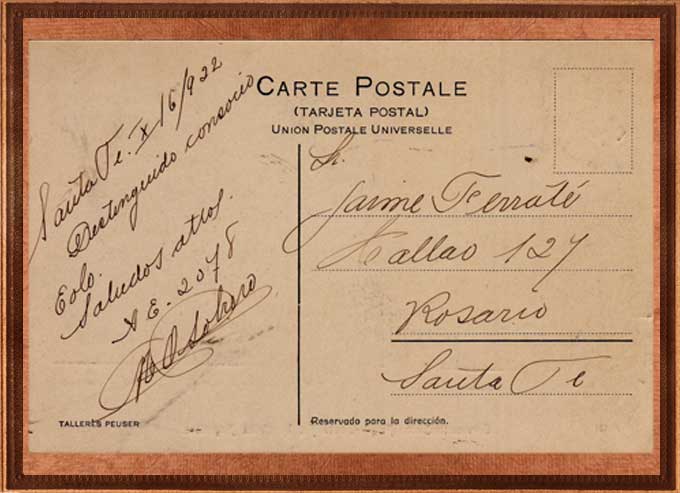 CARTE POSTALE
(TARJETA POSTAL)
UNION POSTALE UNIVERSELLE
Santa Fe. X/16/922
Destinguido consocio
Eolo.
Saludos attos.
A E. 2078
Sr.
Jaime Ferraté
Callao 127
Rosario
Santa Fe
TALLERES PEUSER
Reservado para la dirección.